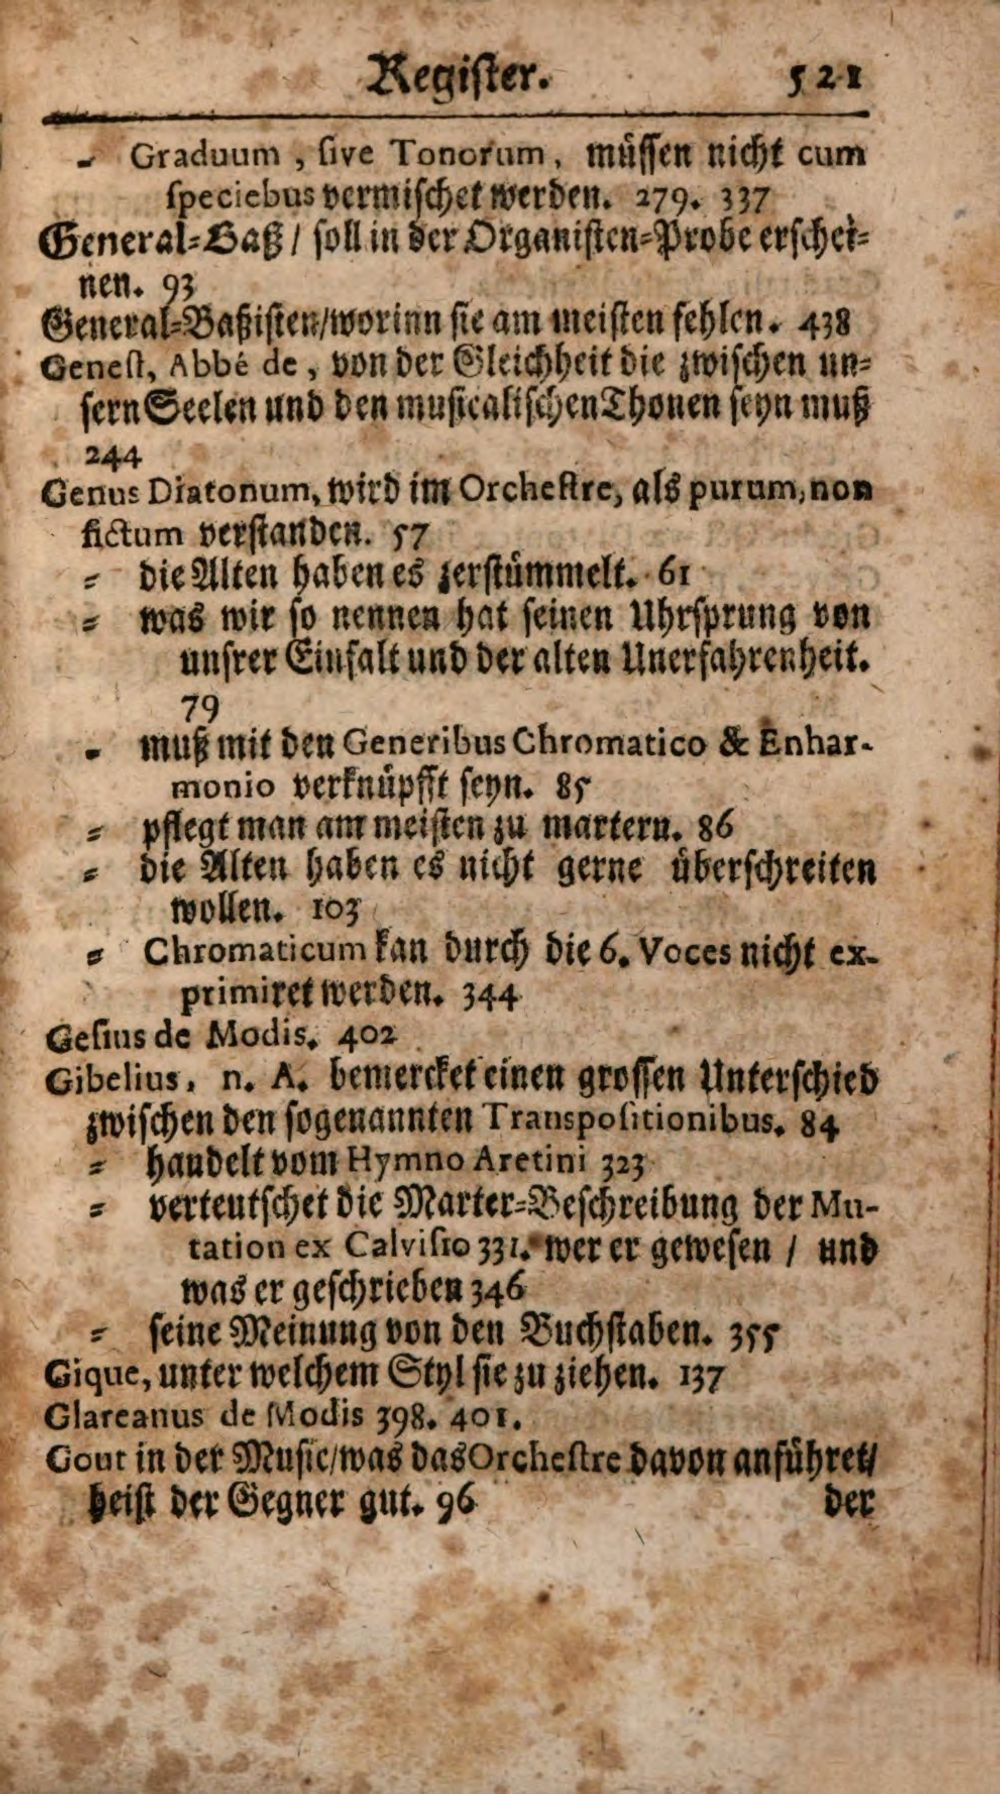 Register. 521
- Graduum, ſive Tonorum, müſſen nicht cum
ſpeciebus vermiſchet werden. 279. 337
General-Baß / ſoll in der Organiſten-Probe erſchei-
nen. 93
General-Baßiſten/worinn ſie am meiſten fehlen. 438
Geneſt, Abbé de, von der Gleichheit die zwiſchen un-
ſern Seelen und den muſicaliſchen Thonen ſeyn muß
244
Genus Diatonum, wird im Orcheſtre, als purum, non
fictum verſtanden. 57
- die Alten haben es zerſtümmelt. 61
- was wir ſo nennen hat ſeinen Uhrſprung von
unſrer Einfalt und der alten Unerfahrenheit.
79
- muß mit den Generibus Chromatico & Enhar-
monio verknüpfft ſeyn. 85
- pflegt man am meiſten zu martern. 86
- die Alten haben es nicht gerne überſchreiten
wollen. 103
- Chromaticum kan durch die 6. Voces nicht ex-
primiret werden. 344
Geſius de Modis. 402
Gibelius, n. A. bemercket einen groſſen Unterſchied
zwiſchen den ſogenannten Transpoſitionibus. 84
- handelt vom Hymno Aretini 323
- verteutſchet die Marter-Beſchreibung der Mu-
tation ex Calviſio 331. wer er geweſen / und
was er geſchrieben 346
- ſeine Meinung von den Buchſtaben. 355
Gique, unter welchem Styl ſie zu ziehen. 137
Glareanus de Modis 398. 401.
Gout in der Muſic/was das Orcheſtre davon anführet/
heiſt der Gegner gut. 96 der